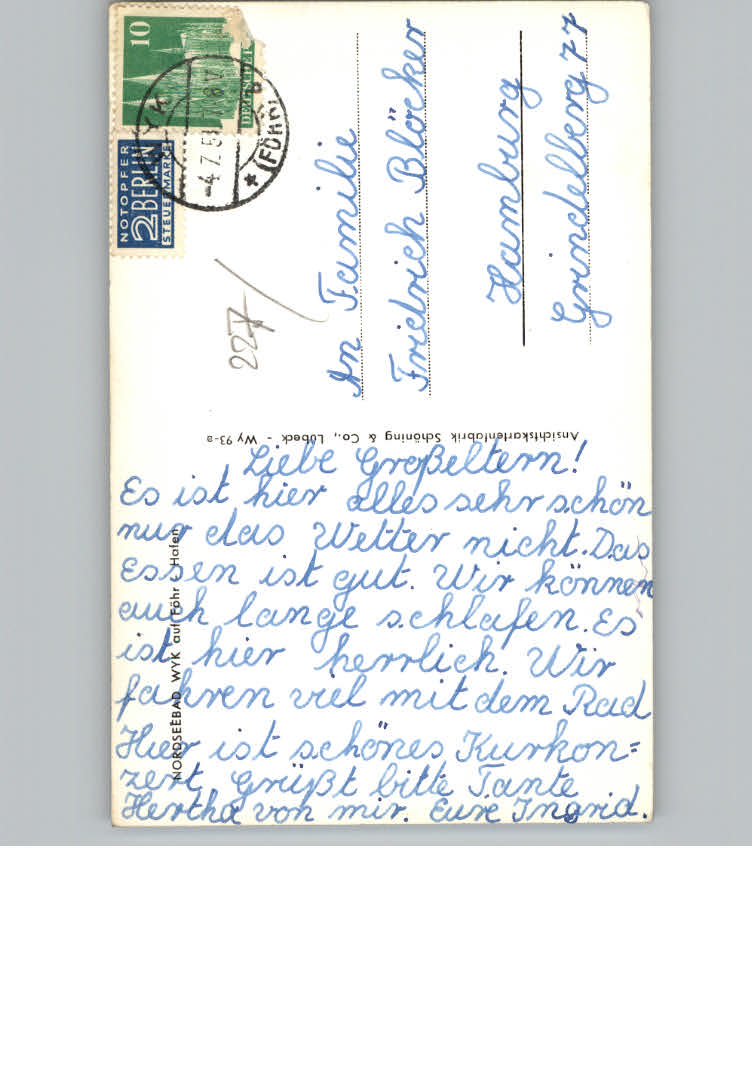 Liebe Großeltern!
Es ist hier alles sehr schön
nur das Wetter nicht. Das
Essen ist gut. Wir können
auch lange schlafen. Es
ist hier herrlich. Wir
fahren viel mit dem Rad
Hier ist schönes Kurkon=
zert. Grüßt bitte Tante
Hertha von mir. Eure Ingrid.
An Familie
Friedrich Blöcker
Hamburg
Grindelberg 77
NORDSEEBAD WYK auf Föhr - Hafen
Ansichtskartenfabrik Schöning & Co., Lübeck - Wy 93-a
227
10
DEUTSCHE
NOTOPFER
2 BERLIN
STEUERMARKE
YK
(FÖHR)
-4.7.5